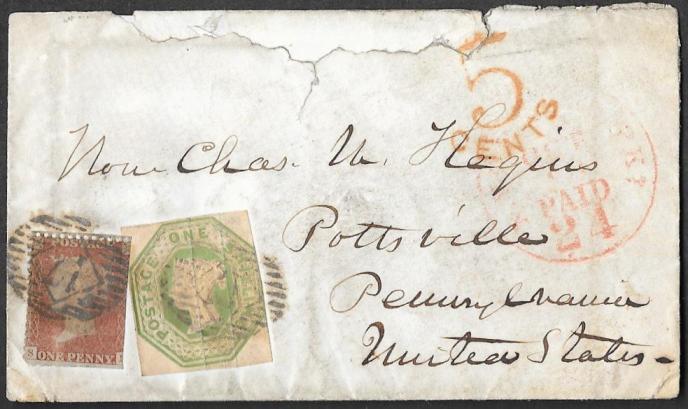 5
CENTS
PAID
24
Hon Chas. M. Hegins
Pottsville
Pennsylvania
United States
POSTAGE ONE
S ONE PENNY